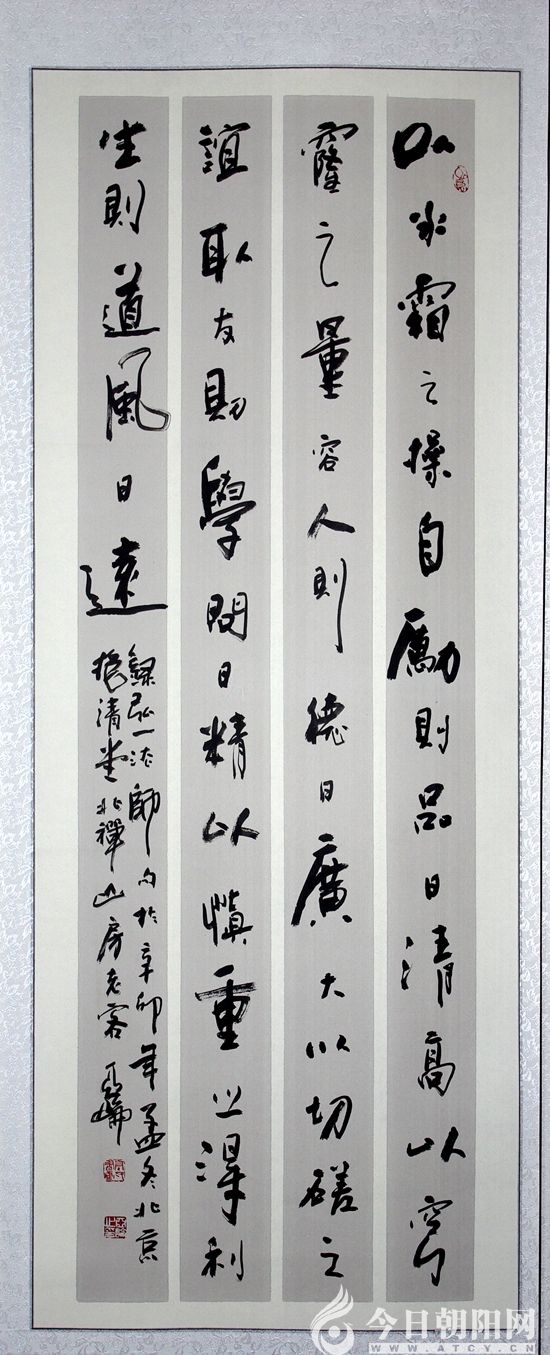 以冰霜之操自勵則品日清高以穹
窿之量容人則德日廣大以切磋之
誼取友則學問日精以慎重之利
生則道風日遠
錄弘一法師句於辛卯年孟冬北京
清堂北禪山房老客
今日朝阳网
WWW.ATCY.CN